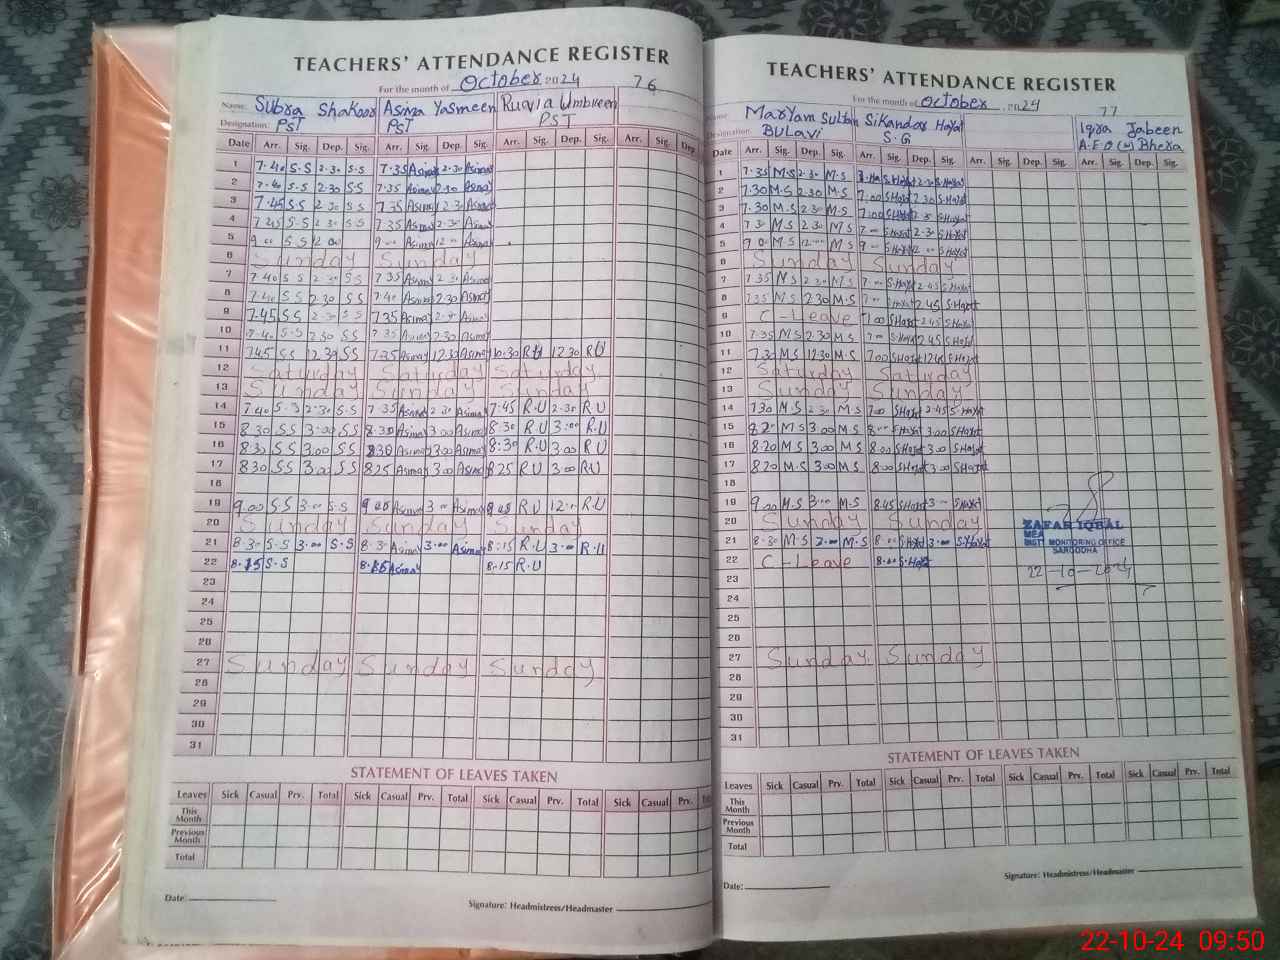 TEACHERS' ATTENDANCE REGISTER
For the month of October 2024 76
Name: Subra Shakoor Asima Yasmeen Ruqia Umbreen
Designation: PST PST PST
Date Arr. Sig. Dep. Sig. Arr. Sig. Dep. Sig. Arr. Sig. Dep. Sig. Arr. Sig. Dep.
1 7.40 S.S 2.30 S.S 7.35 Asima 2.30 Asima
2 7.40 S.S 2.30 SS 7.35 Asima 2.30 Asima
3 7.45 SS 2.30 SS 7.35 Asima 2.30 Asima
4 S.S 2.30 SS 7.35 Asima 2.30 Asima
5 9.00 S.S 9.00 Asima 12.00 Asima
6 Sunday Sunday
7 7.40 S S 2.30 SS 7.35 Asima 2.30 Asima
8 7.40 SS 2.30 SS 7.40 Asima 2.30 Asima
9 7.45 SS 2.30 SS 7.35 Asima Asima
10 7.40 S.S 2.30 SS 7.35 Asima 2.30 Asima
11 7.45 SS 12.30 SS 7.35 Asima 12.30 Asima 10.30 RU 12.30 RU
12 Saturday Saturday Saturday
13 Sunday Sunday Sunday
14 7.40 S.S 2.30 S.S 7.35 Asima 2.30 Asima 7.45 R.U 2.30 R.U
15 8.30 SS 3.00 SS 8.30 Asima 3.00 Asima 8.30 R.U 3.00 R.U
16 8.30 SS 3.00 SS 8.30 Asima 3.00 Asima 8.30 R.U 3.00 R.U
17 8.30 SS 3.00 SS 8.25 Asima 3.00 Asima 8.25 R.U 3.00 RU
18
19 9.00 SS 3.00 S.S Asima 3.00 Asima R.U 12.00 R.U
20 Sunday Sunday Sunday
21 8.30 S.S 3.00 S.S 8.30 Asima 3.00 Asima 8.15 R.U 3.00 R.U
22 8.15 S.S Asima 8.15 R.U
23
24
25
26
27 Sunday Sunday Sunday
28
29
30
31
STATEMENT OF LEAVES TAKEN
Leaves Sick Casual Prv. Total Sick Casual Prv. Total Sick Casual Prv. Total Sick Casual Prv.
This Month
Previous Month
Total
Date:
Signature: Headmistress/Headmaster
TEACHERS' ATTENDANCE REGISTER
For the month of October 2024 77
Maryam Sultan Sikandar Hayat Iqra Jabeen
Designation BULAVI S.G A.E.O (W) Bhera
Date Arr. Sig. Dep. Sig. Arr. Sig. Dep. Sig. Arr. Sig. Dep. Sig. Arr. Sig. Dep. Sig.
1 7.35 M.S 2.30 M.S S.Hayat 2.30 S.Hayat
2 7.30 M.S 2.30 M.S 7.00 S.Hayat 2.30 S.Hayat
3 7.30 M.S 2.30 M.S 7.00 S.Hayat S.Hayat
4 7.30 M.S 2.30 M.S 7.00 S.Hayat 2.30 S.Hayat
5 M.S 12.00 M.S 9.00 S.Hayat 12.00 S.Hayat
6 Sunday Sunday
7 7.35 M.S 2.30 M.S 7.00 S.Hayat 2.45 S.Hayat
8 7.35 M.S 2.30 M.S 7.00 S.Hayat 2.45 S.Hayat
9 C-Leave 7.00 S.Hayat 2.45 S.Hayat
10 7.35 M.S 2.30 M.S 7.00 S.Hayat 2.45 S.Hayat
11 7.30 M.S 12.30 M.S 7.00 S.Hayat S.Hayat
12 Saturday Saturday
13 Sunday Sunday
14 7.30 M.S 2.30 M.S 7.00 S.Hayat 2.45 S.Hayat
15 8.20 M.S 3.00 M.S 8.00 S.Hayat 3.00 S.Hayat
16 8.20 M.S 3.00 M.S 8.00 S.Hayat 3.00 S.Hayat
17 8.20 M.S 3.00 M.S 8.00 S.Hayat 3.00 S.Hayat
18
19 9.00 M.S 3.00 M.S 8.45 S.Hayat 3.00 S.Hayat
20 Sunday Sunday
21 8.30 M.S M.S 8.00 S.Hayat 3.00 S.Hayat
22 C-Leave 8.00 S.Hayat
23
24
25
26
27 Sunday Sunday
28
29
30
31
ZAFAR IQBAL
MEA
DISTT MONITORING OFFICE
SARGODHA
22-10-2024
STATEMENT OF LEAVES TAKEN
Leaves Sick Casual Prv. Total Sick Casual Prv. Total Sick Casual Prv. Total Sick Casual Prv. Total
This Month
Previous Month
Total
Date:
Signature: Headmistress/Headmaster
22-10-24 09:50